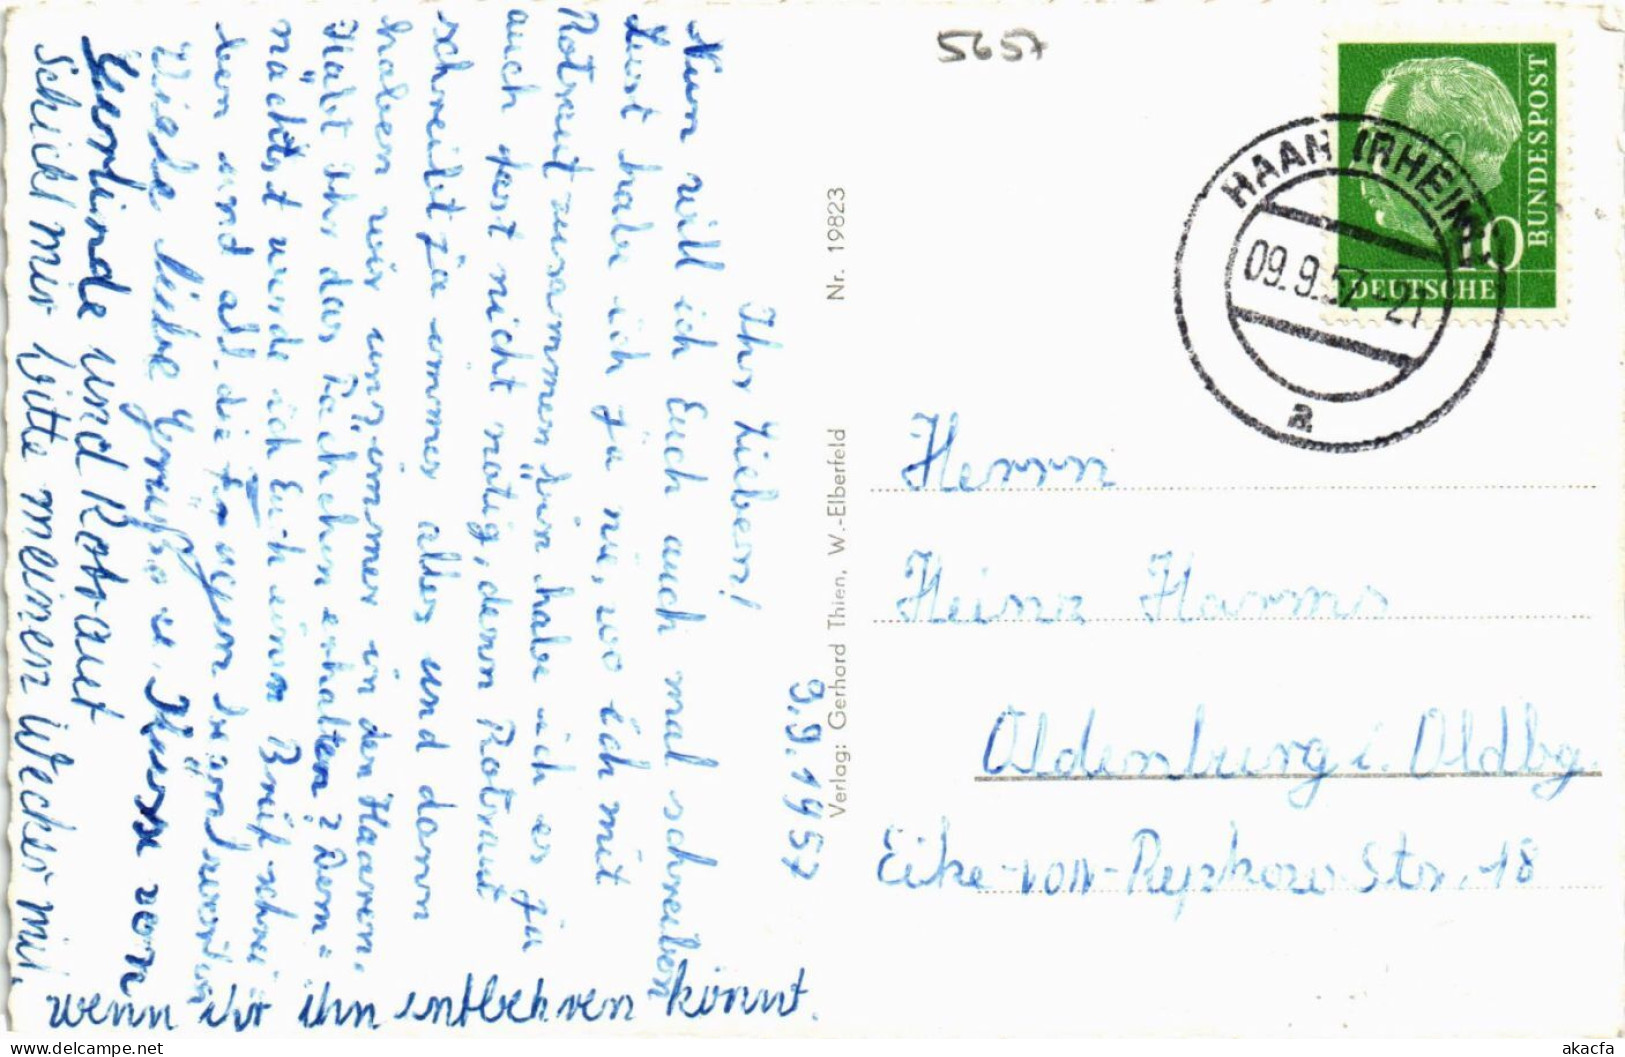 5657
BUNDESPOST
10
DEUTSCHE
HAAN (RHEINL)
09.9.57-21
a
9.9.1957
Ihr Lieben!
Nun will ich Euch auch mal schreiben
Lust habe ich ja nie, wo ich mit
Rotraut zusammen bin habe ich es ja
auch fast nicht nötig, denn Rotraut
schreibt ja immer alles und dann
haben wir uns immer in den Haaren.
Habt Ihr das Päckchen erhalten? Dem=
nächst werde ich Euch einen Brief schrei=
ben und all die Fragen beantworten
Viele liebe Grüße u. Küsse von
Gerlinde und Rotraut
Schickt mir bitte meinen Wecker mit,
wenn ihr ihn entbehren könnt.
Nr. 19823
Verlag: Gerhard Thien, W.-Elberfeld
Herrn
Heinz Harms
Oldenburg i. Oldbg.
Eike-von-Repkow Str. 18
akacfa